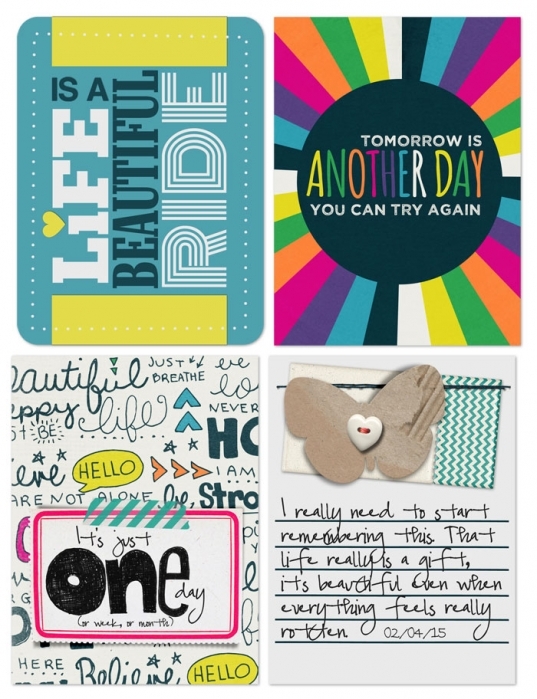 LiFE
IS A
BEAUTIFUL
RIDE
TOMORROW IS
ANOTHER DAY
YOU CAN TRY AGAIN
eautiful JUST we
BREATHE
eppy life lo
NEVER
ST BE HO
eve HELLO I AM
ARE NOT ALONE be Stro
It's just
one
day
(or week, or month)
HERE Believe HELLO
I really need to start
remembering this. That
life really is a gift,
it's beautiful even when
everything feels really
rotten. 02/04/15